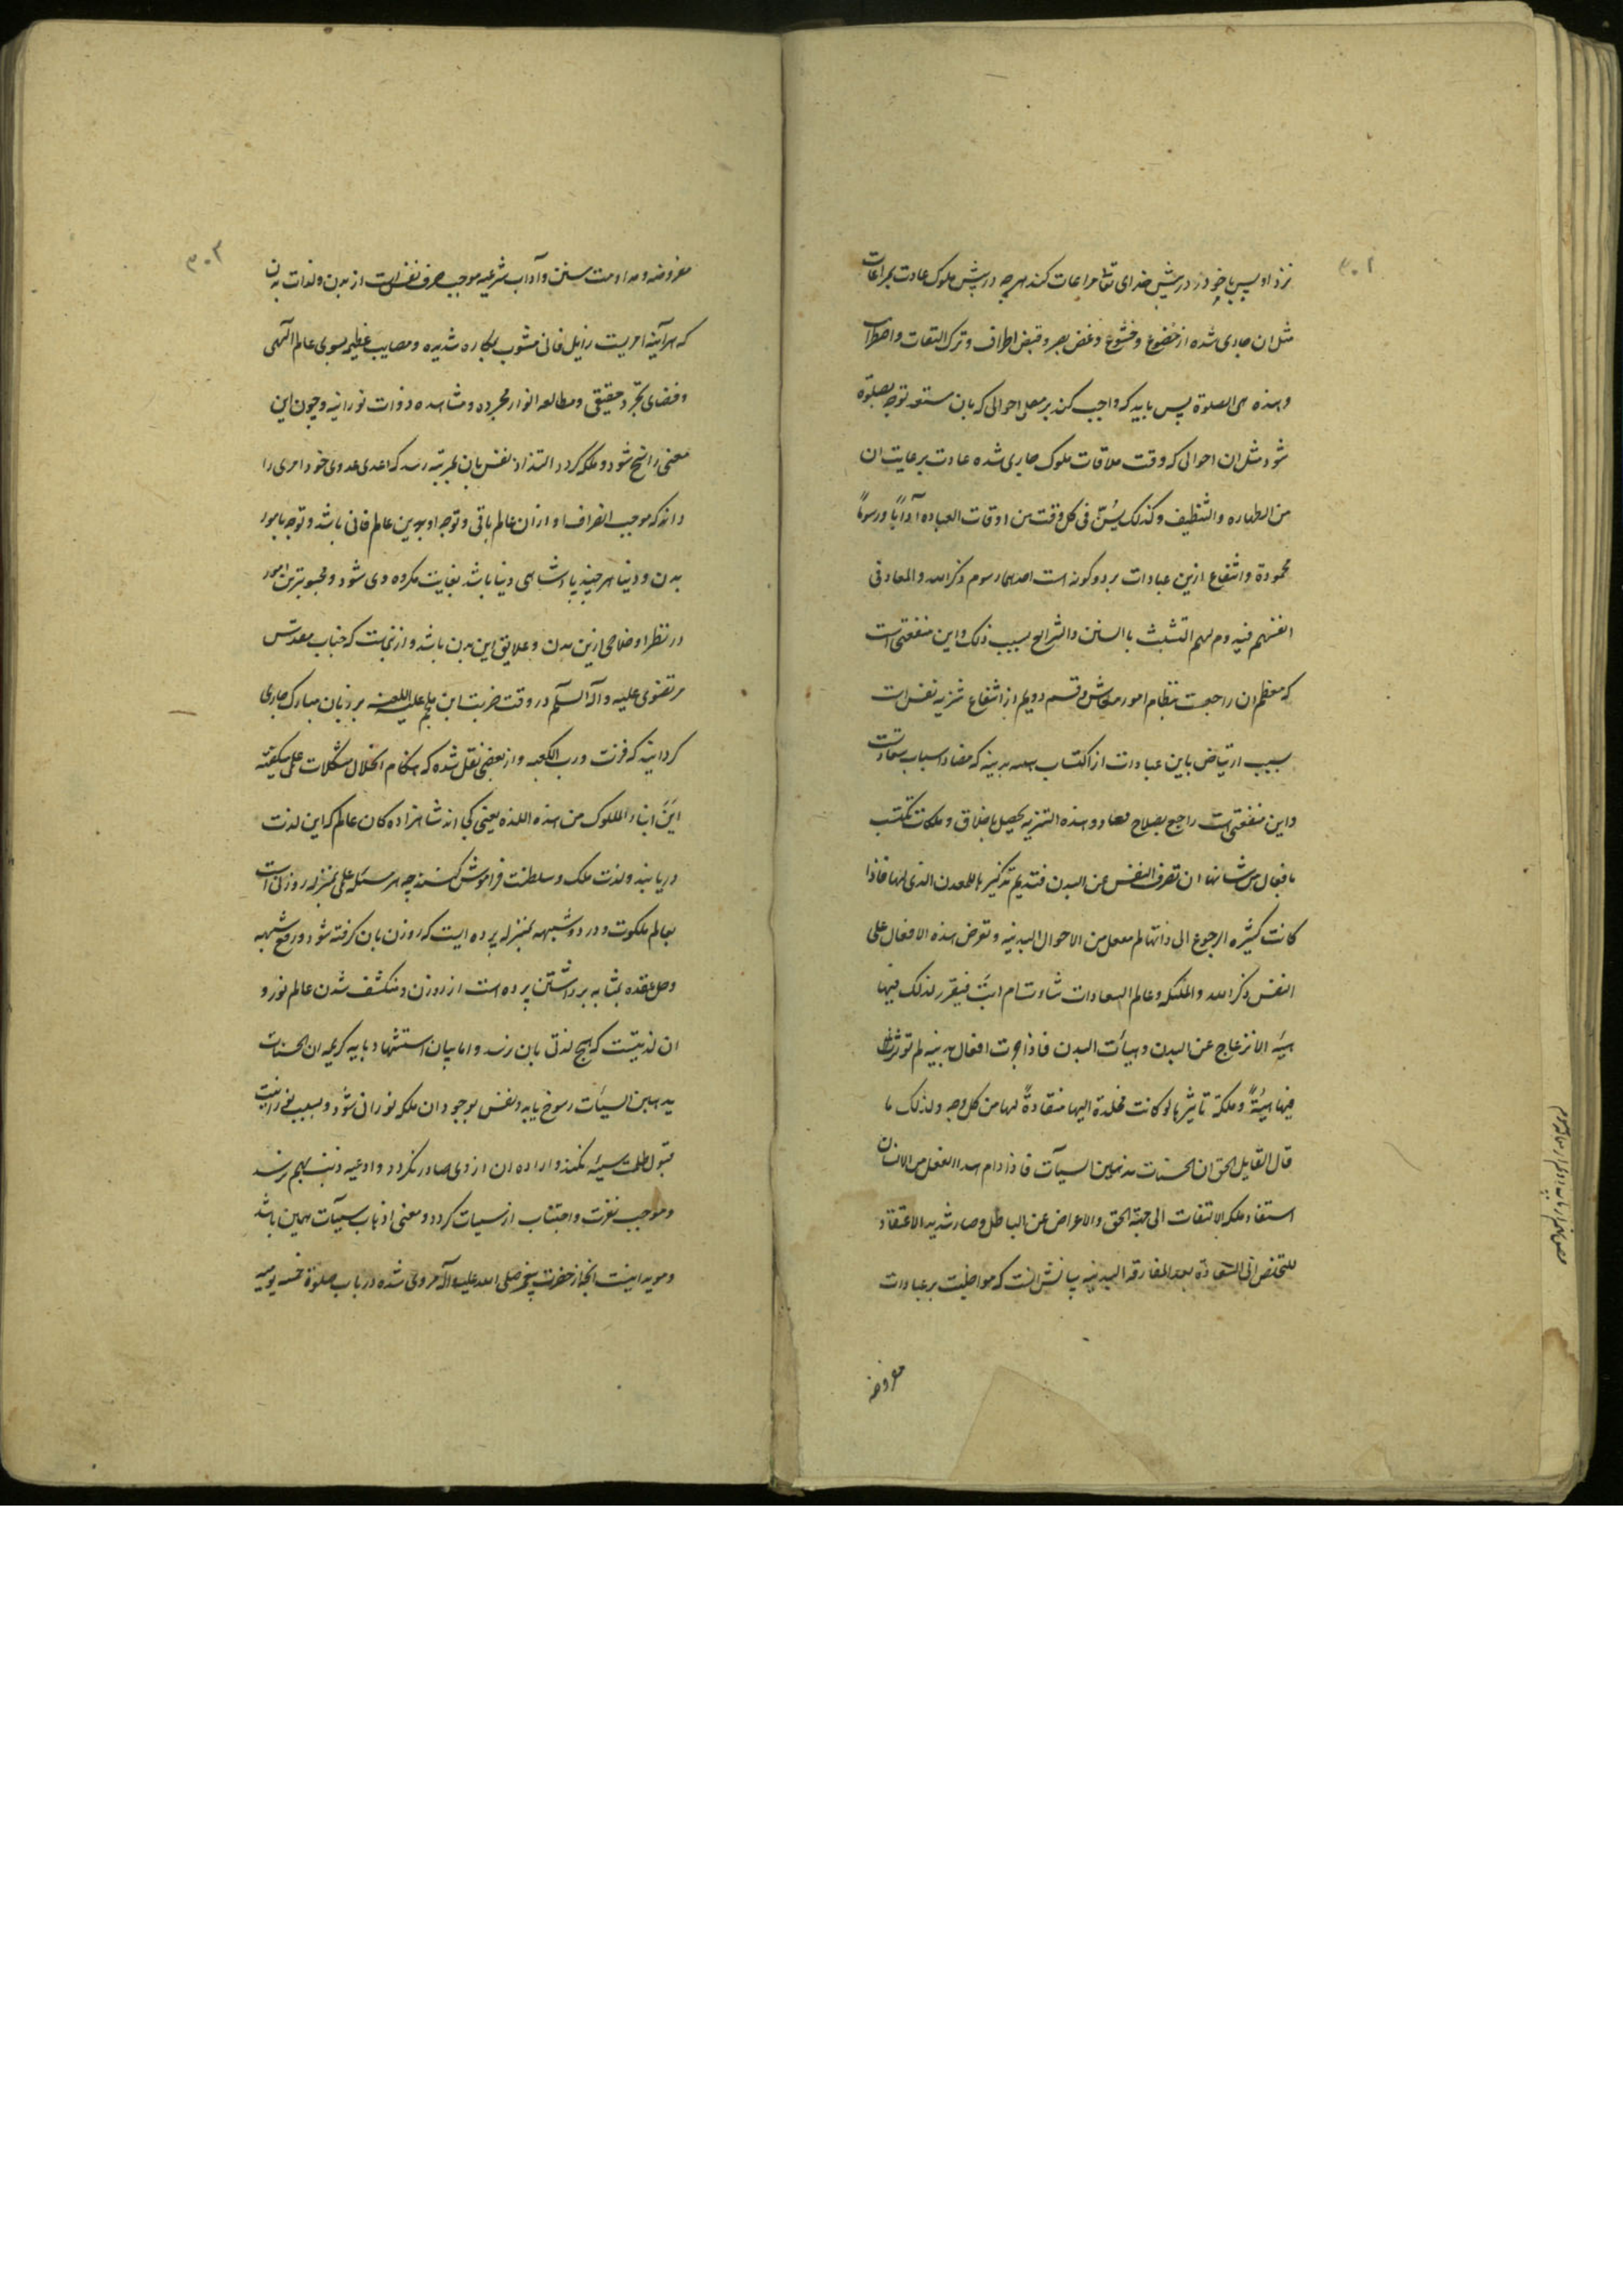 ۳۰۲
نزد او پس باخود در پیش خدای تعا مراعات کند هرچه در پیش ملوک عادت بمراعات
مثل ان جاری شده از خضوع و خشوع و غض بصر و قبض اطراف و ترک التفات و اضطراب
وهذه هی الصلوة پس باید که واجب کند بر مصلی احوالی که بان مستعد توجه بصلوة
شود مثل ان احوالی که وقت ملاقات ملوک جاری شده عادت برعایت ان
من الطهاره والتنظیف وکذلک یسُنّ فی کل وقت من اوقات العباده آداباً ورسوماً
محمودة وانتفاع ازین عبادات بر دو گونه است احدیهما رسوم ذکر الله والمعاد فی
انفسهم فیدوم لهم التشبث بالسنن والشرایع بسبب ذلک واین منفعتی است
که معظم ان راجعست بنظام امور معاش و قسم دویم از انتفاع تنزیه نفس است
بسبب ارتیاض باین عبادات از اکتساب بدنیه که مضاد اسباب سعادت
واین منفعتی است راجع بصلاح معاد وهذه التنزیه یحصل باخلاق وملکات تکتسب
بافعال من شانها ان تصرف النفس عن البدن فتدیم تذکیرها للمعدن الذی لها فاذا
کانت کثیره الرجوع الی ذاتها لم ینفعل من الاحوال البدنیه وتعرض هذه الافعال علی
النفس ذکر الله والملئکه وعالم السعادات شاءت ام ابَت فیقرر لذلک فیها
هیئه الانزعاج عن البدن وهیأت البدن فاذا جرت افعال بدنیه لم تؤثر
فیها هیئةً وملکة تاثیرها لو کانت مخلدة الیها منقادةً لها من کل وجه ولذلک ما
قال القایل الحق ان الحسنات یذهبن السیآت فاذا دام هذا الفعل من الانسان
استفاد ملکه الالتفات الی جهة الحق والاعراض عن الباطل وصار شدید الاعتقاد
للتخلص الی السعادة بعد المفارقه البدنیه بیانش انست که مواظبت بر عبادات
مفروضه
۳۰۳
مفروضه و مداومت سنن و آداب شرعیه موجب صرف نفس است از بدن و لذات بدن
که هرآینه امریست زایل فانی مشوب بمکاره شدیده و مصایب عظیمه بسوی عالم الهی
و فضای تجرد حقیقی و مطالعه انوار مجرده و مشاهده ذوات نورانیه و چون این
معنی راسخ شود و ملکه گردد التذاذ نفس بان بمرتبه رسد که اعدی عدوی خود امری را
داند که موجب انصراف او از ان عالم باقی و توجه او بدین عالم فانی باشد و توجه بامور
بدن و دنیا هرچند پادشاهی دنیا باشد بغایت مکروه وی شود و محبوبترین امور
در نظر او خلاصی ازین بدن و علایق این بدن باشد و ازینست که جناب مقدس
مرتضوی علیه وآله السلم در وقت ضربت ابن ملجم علیه اللعنه بر زبان مبارک جاری
گردانید که فزت ورب الکعبه و از بعضی نقل شده که هنگام انحلال مشکلات علمی میگفته
اینَ ابناء الملوک من هذه اللذه یعنی کجا اند شاهزاده کان عالم که این لذت
دریابند و لذت ملک و سلطنت فراموش کنند چه هر مسئله علمی بمنزله روزنی است
بعالم ملکوت و ورود شبهه بمنزله پرده ایست که روزن بان گرفته شود و رفع شبهه
وحل عقده بمثابه برداشتن پرده است از روزن و منکشف شدن عالم نور و
ان لذتیست که هیچ لذتی بان نرسد و اما بیان استشهاد بایه کریمه ان الحسنات
یذهبن السیأت رسوخ یابد و نفس بوجود ان ملکه نورانی شود و بسبب نورانیت
قبول ظلمت سیئه نکند و اراده ان از وی صادر نگردد و ادعیه ذنب بهم نرسد
و موجب نفرت و اجتناب از سیئات گردد و معنی اذهاب سیئات همین باشد
و موید اینست آنچه از حضرت پیغمبر صلی الله علیه وآله مروی شده در باب صلوة خمسه یومیه